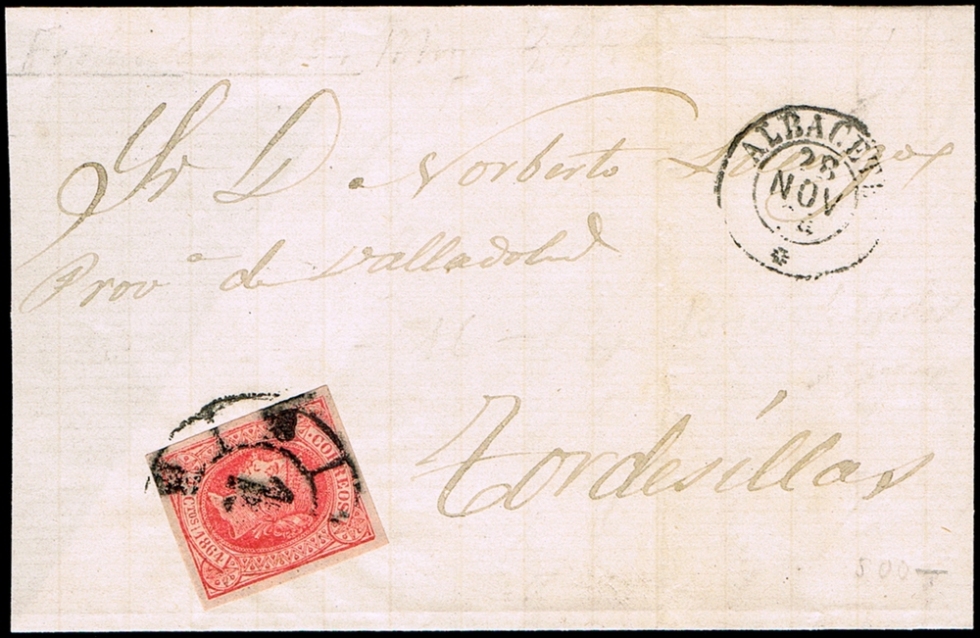 Sr D. Norberto
Provª de Valladolid
Tordesillas
ALBACETE
28
NOV
CORREOS
CTOS 1864
500—